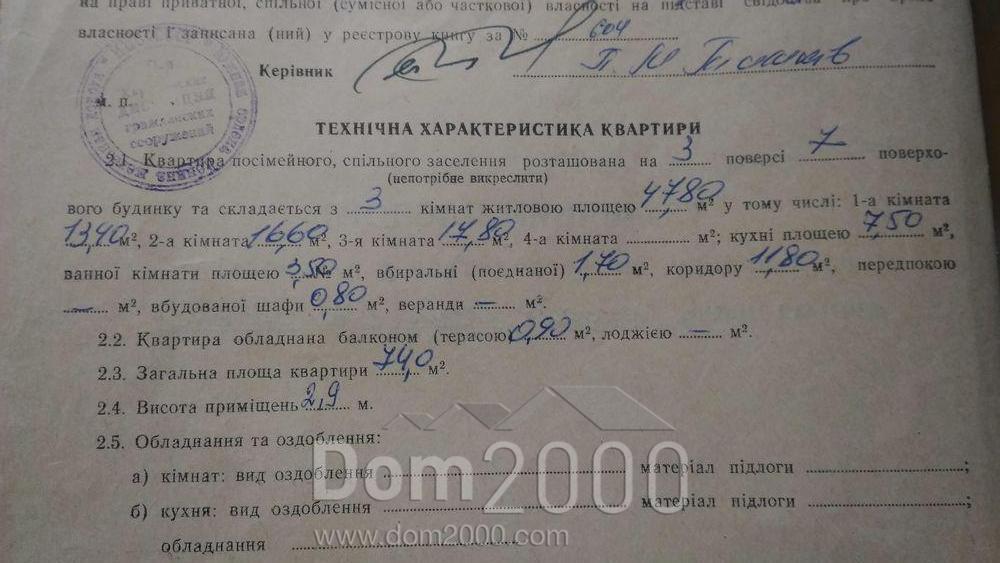 на праві приватної, спільної (сумісної або часткової) власності на підставі свідоцтва про право
власності і записана (ний) у реєстрову книгу за № 604
Керівник
м. п.
гражданских
сооружений
ТЕХНІЧНА ХАРАКТЕРИСТИКА КВАРТИРИ
2.1. Квартира посімейного, спільного заселення розташована на 3 поверсі 7 поверхо-
(непотрібне викреслити)
вого будинку та складається з 3 кімнат житловою площею 47,80 м² у тому числі: 1-а кімната
13,40 м², 2-а кімната 16,60 м², 3-я кімната 17,80 м², 4-а кімната м²; кухні площею 7,50 м²,
ванної кімнати площею 3,50 м², вбиральні (поєднаної) 1,70 м², коридору 11,80 м², передпокою
— м², вбудованої шафи 0,80 м², веранди — м².
2.2. Квартира обладнана балконом (терасою) 0,90 м², лоджією — м².
2.3. Загальна площа квартири 74,0 м².
2.4. Висота приміщень 2,9 м.
2.5. Обладнання та оздоблення:
а) кімнат: вид оздоблення матеріал підлоги ;
б) кухня: вид оздоблення матеріал підлоги ;
обладнання
Dom2000
www.dom2000.com